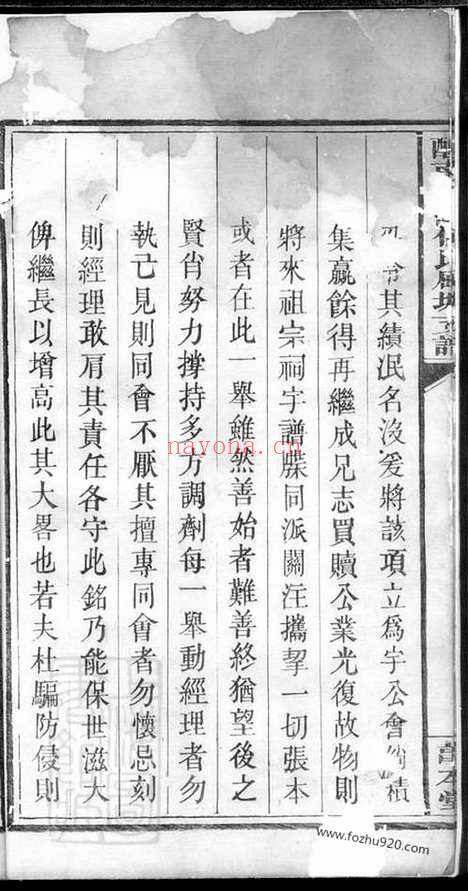 其績泯名沒爰將該項立爲宇公會積
集贏餘得再繼成兄志買贖公業光復故物則
將來祖宗祠宇譜牒同派關注攜挈一切張本
或者在此一舉雖然善始者難善終猶望後之
賢肖努力撐持多方調劑每一舉動經理者勿
執己見則同會不厭其擅專同會者勿懷忌刻
則經理敢肩其責任各守此銘乃能保世滋大
俾繼長以增高此其大畧也若夫杜騙防侵則
nayona.cn
www.fozhu920.com